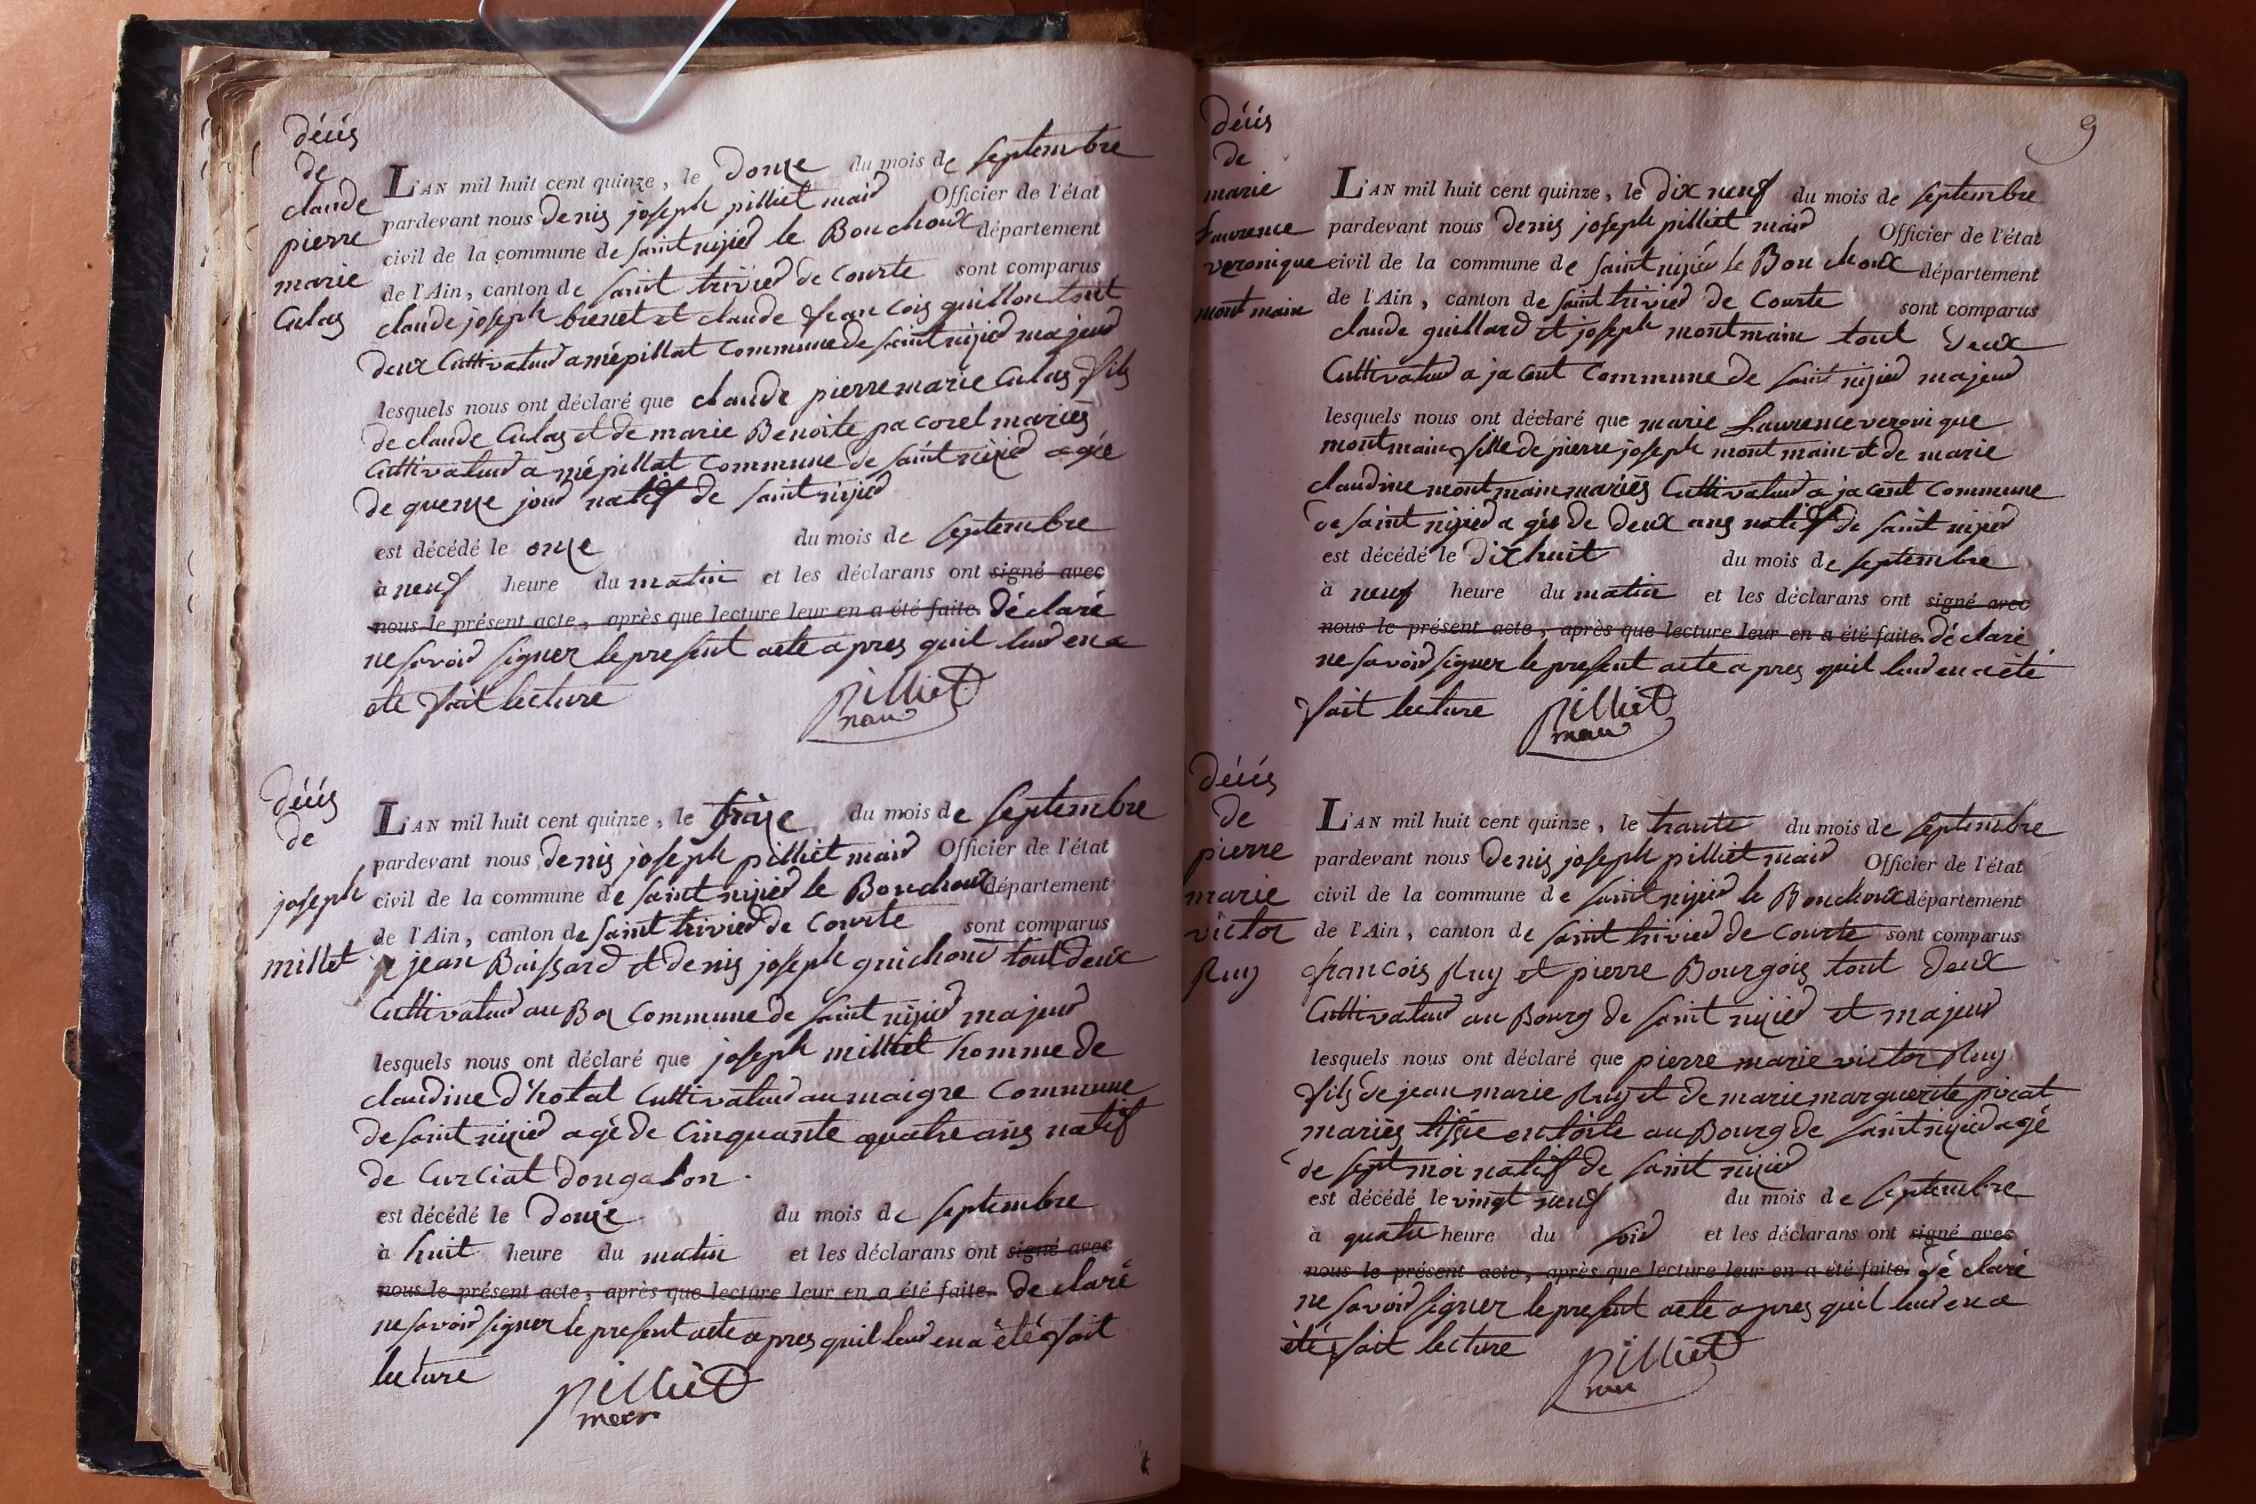 décès
de
claude
pierre
marie
Culas
L'AN mil huit cent quinze, le douze du mois de septembre
pardevant nous denis joseph pilliet maire Officier de l'état
civil de la commune de saint nizier le Bouchoux département
de l'Ain, canton de saint trivier de Courte sont comparus
claude joseph brenet et claude francois guillon tout
deux Cultivateur a mépillat commune de saint nizier majeur
lesquels nous ont déclaré que claude pierre marie Culas fils
de claude Culas et de marie Benoite pacorel mariés
Cultivateur a mépillat commune de saint nizier agée
de quenze jour natif de saint nizier
est décédé le onze du mois de septembre
à neuf heure du matin et les déclarans ont signé avec
nous le présent acte, après que lecture leur en a été faite. déclaré
ne savoir signer le present acte apres quil leur en a
été fait lecture
pilliet
maire
décès
de
joseph
millet
L'AN mil huit cent quinze, le trèize du mois de septembre
pardevant nous denis joseph pilliet maire Officier de l'état
civil de la commune de saint nizier le Bouchoux département
de l'Ain, canton de saint trivier de Courte sont comparus
jean Boissard et denis joseph guichond tout deux
Cultivateur au Boz commune de saint nizier majeur
lesquels nous ont déclaré que joseph milliet homme de
claudine d'hotal Cultivateur au maigre commune
de saint nizier agé de cinquante quatre ans natif
de Curciat dongalon.
est décédé le douze du mois de septembre
à huit heure du matin et les déclarans ont signé avec
nous le présent acte, après que lecture leur en a été faite. declaré
ne savoir signer le present acte apres quil leur en a été fait
lecture
pilliet
maire
9
décès
de
marie
Laurence
veronique
montmain
L'AN mil huit cent quinze, le dix neuf du mois de septembre
pardevant nous denis joseph pilliet maire Officier de l'état
civil de la commune de saint nizier le Bouchoux département
de l'Ain, canton de saint trivier de Courte sont comparus
claude guillard et joseph montmain tout deux
Cultivateur a jacent commune de saint nizier majeur
lesquels nous ont déclaré que marie Laurence veronique
montmain fille de pierre joseph montmain et de marie
claudine montmain mariés Cultivateur a jacent commune
de saint nizier agée de deux ans natif de saint nizier
est décédé le dix huit du mois de septembre
à neuf heure du matin et les déclarans ont signé avec
nous le présent acte, après que lecture leur en a été faite. déclaré
ne savoir signer le present acte apres quil leur en a été
fait lecture
pilliet
maire
décès
de
pierre
marie
victor
Ruy
L'AN mil huit cent quinze, le trante du mois de septembre
pardevant nous denis joseph pilliet maire Officier de l'état
civil de la commune de saint nizier le Bouchoux département
de l'Ain, canton de saint trivier de Courte sont comparus
francois Ruy et pierre Bourgois tout deux
Cultivateur au Bourg de saint nizier et majeur
lesquels nous ont déclaré que pierre marie victor Ruy
fils de jean marie Ruy et de marie marguerite pirat
mariés tissié en toile au Bourg de saint nizier agé
de sept moi natif de saint nizier
est décédé le vingt neuf du mois de septembre
à quatre heure du soir et les déclarans ont signé avec
nous le présent acte, après que lecture leur en a été faite. dé claré
ne savoir signer le present acte apres quil leur en a
été fait lecture
pilliet
maire